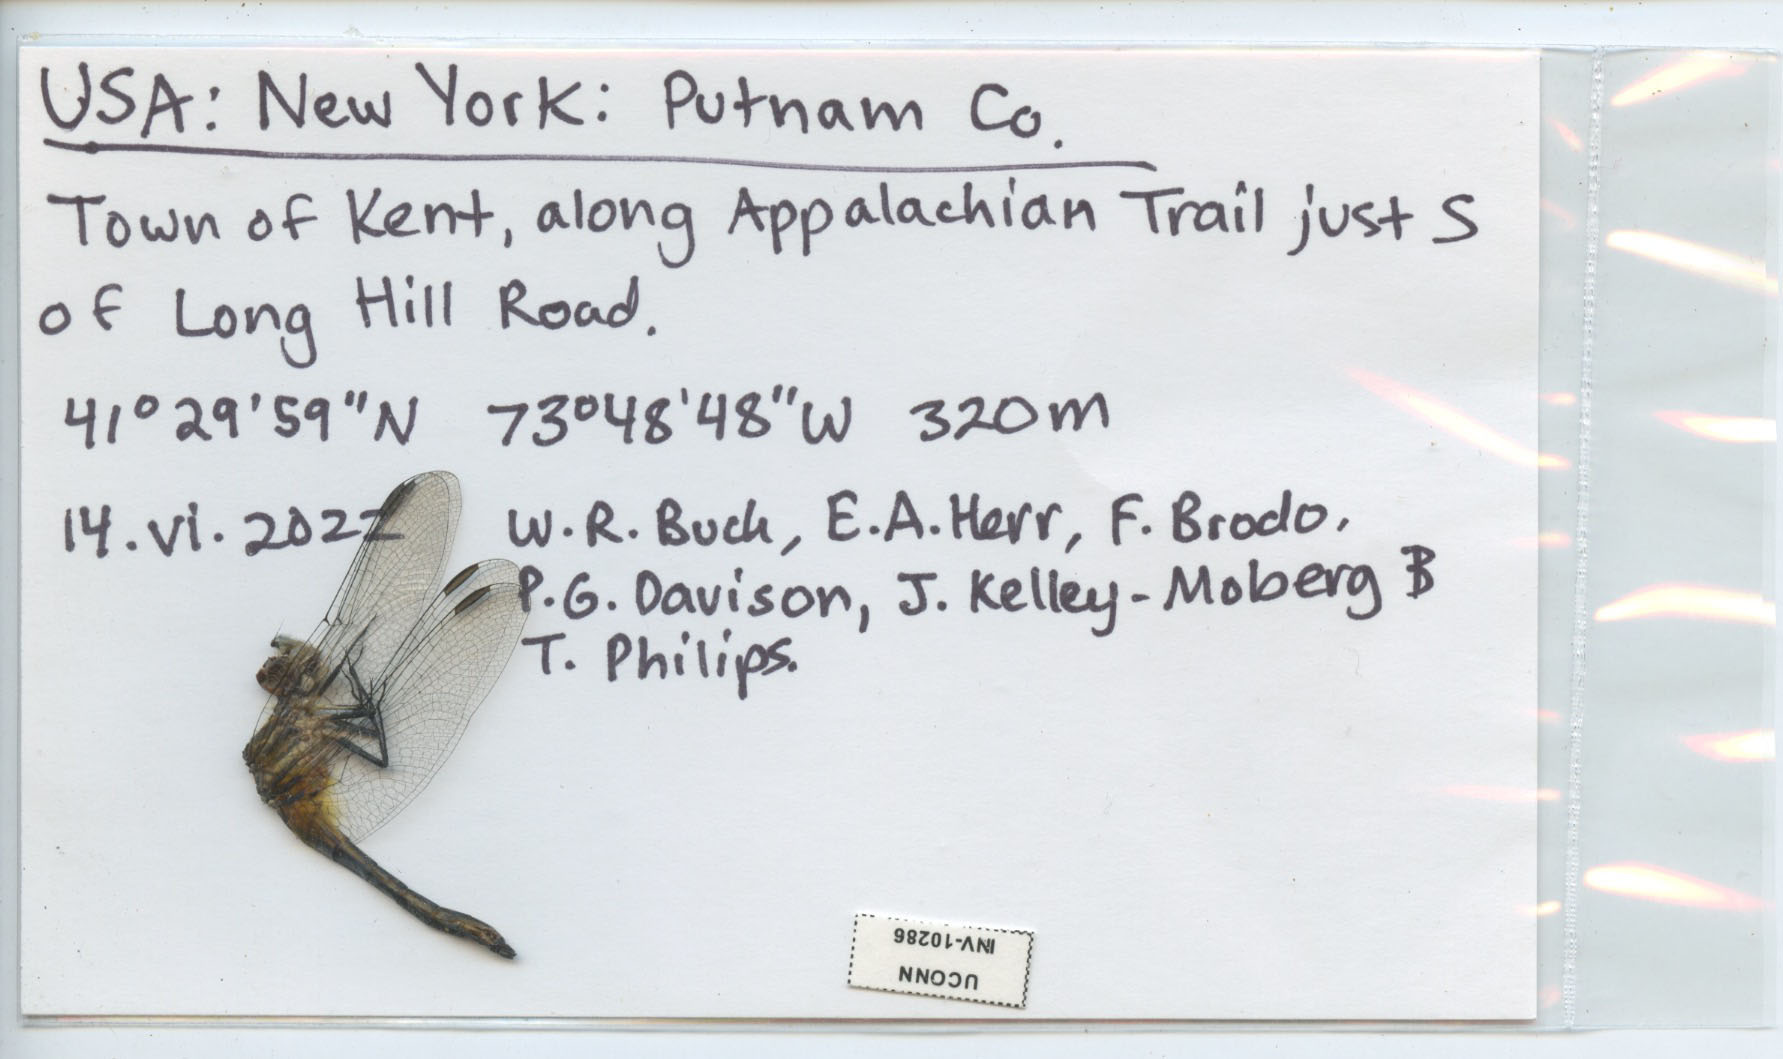 USA: New York: Putnam Co.
Town of Kent, along Appalachian Trail just S
of Long Hill Road.
41°29'59"N 73°48'48"W 320m
14.vi.2022 W.R. Buck, E.A. Herr, F. Brodo,
P.G. Davison, J. Kelley-Moberg &
T. Philips.
UCONN
INV-10286